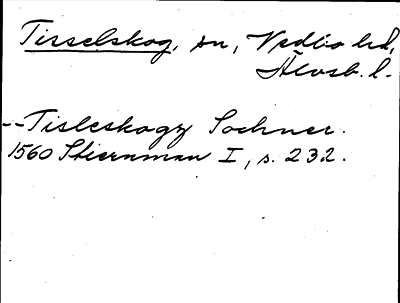 Tisselskog, sn, Vedbo hd,
Älvsb. l.
--Tisleskogz Sochner.
1560 Stiernman I, s. 232.